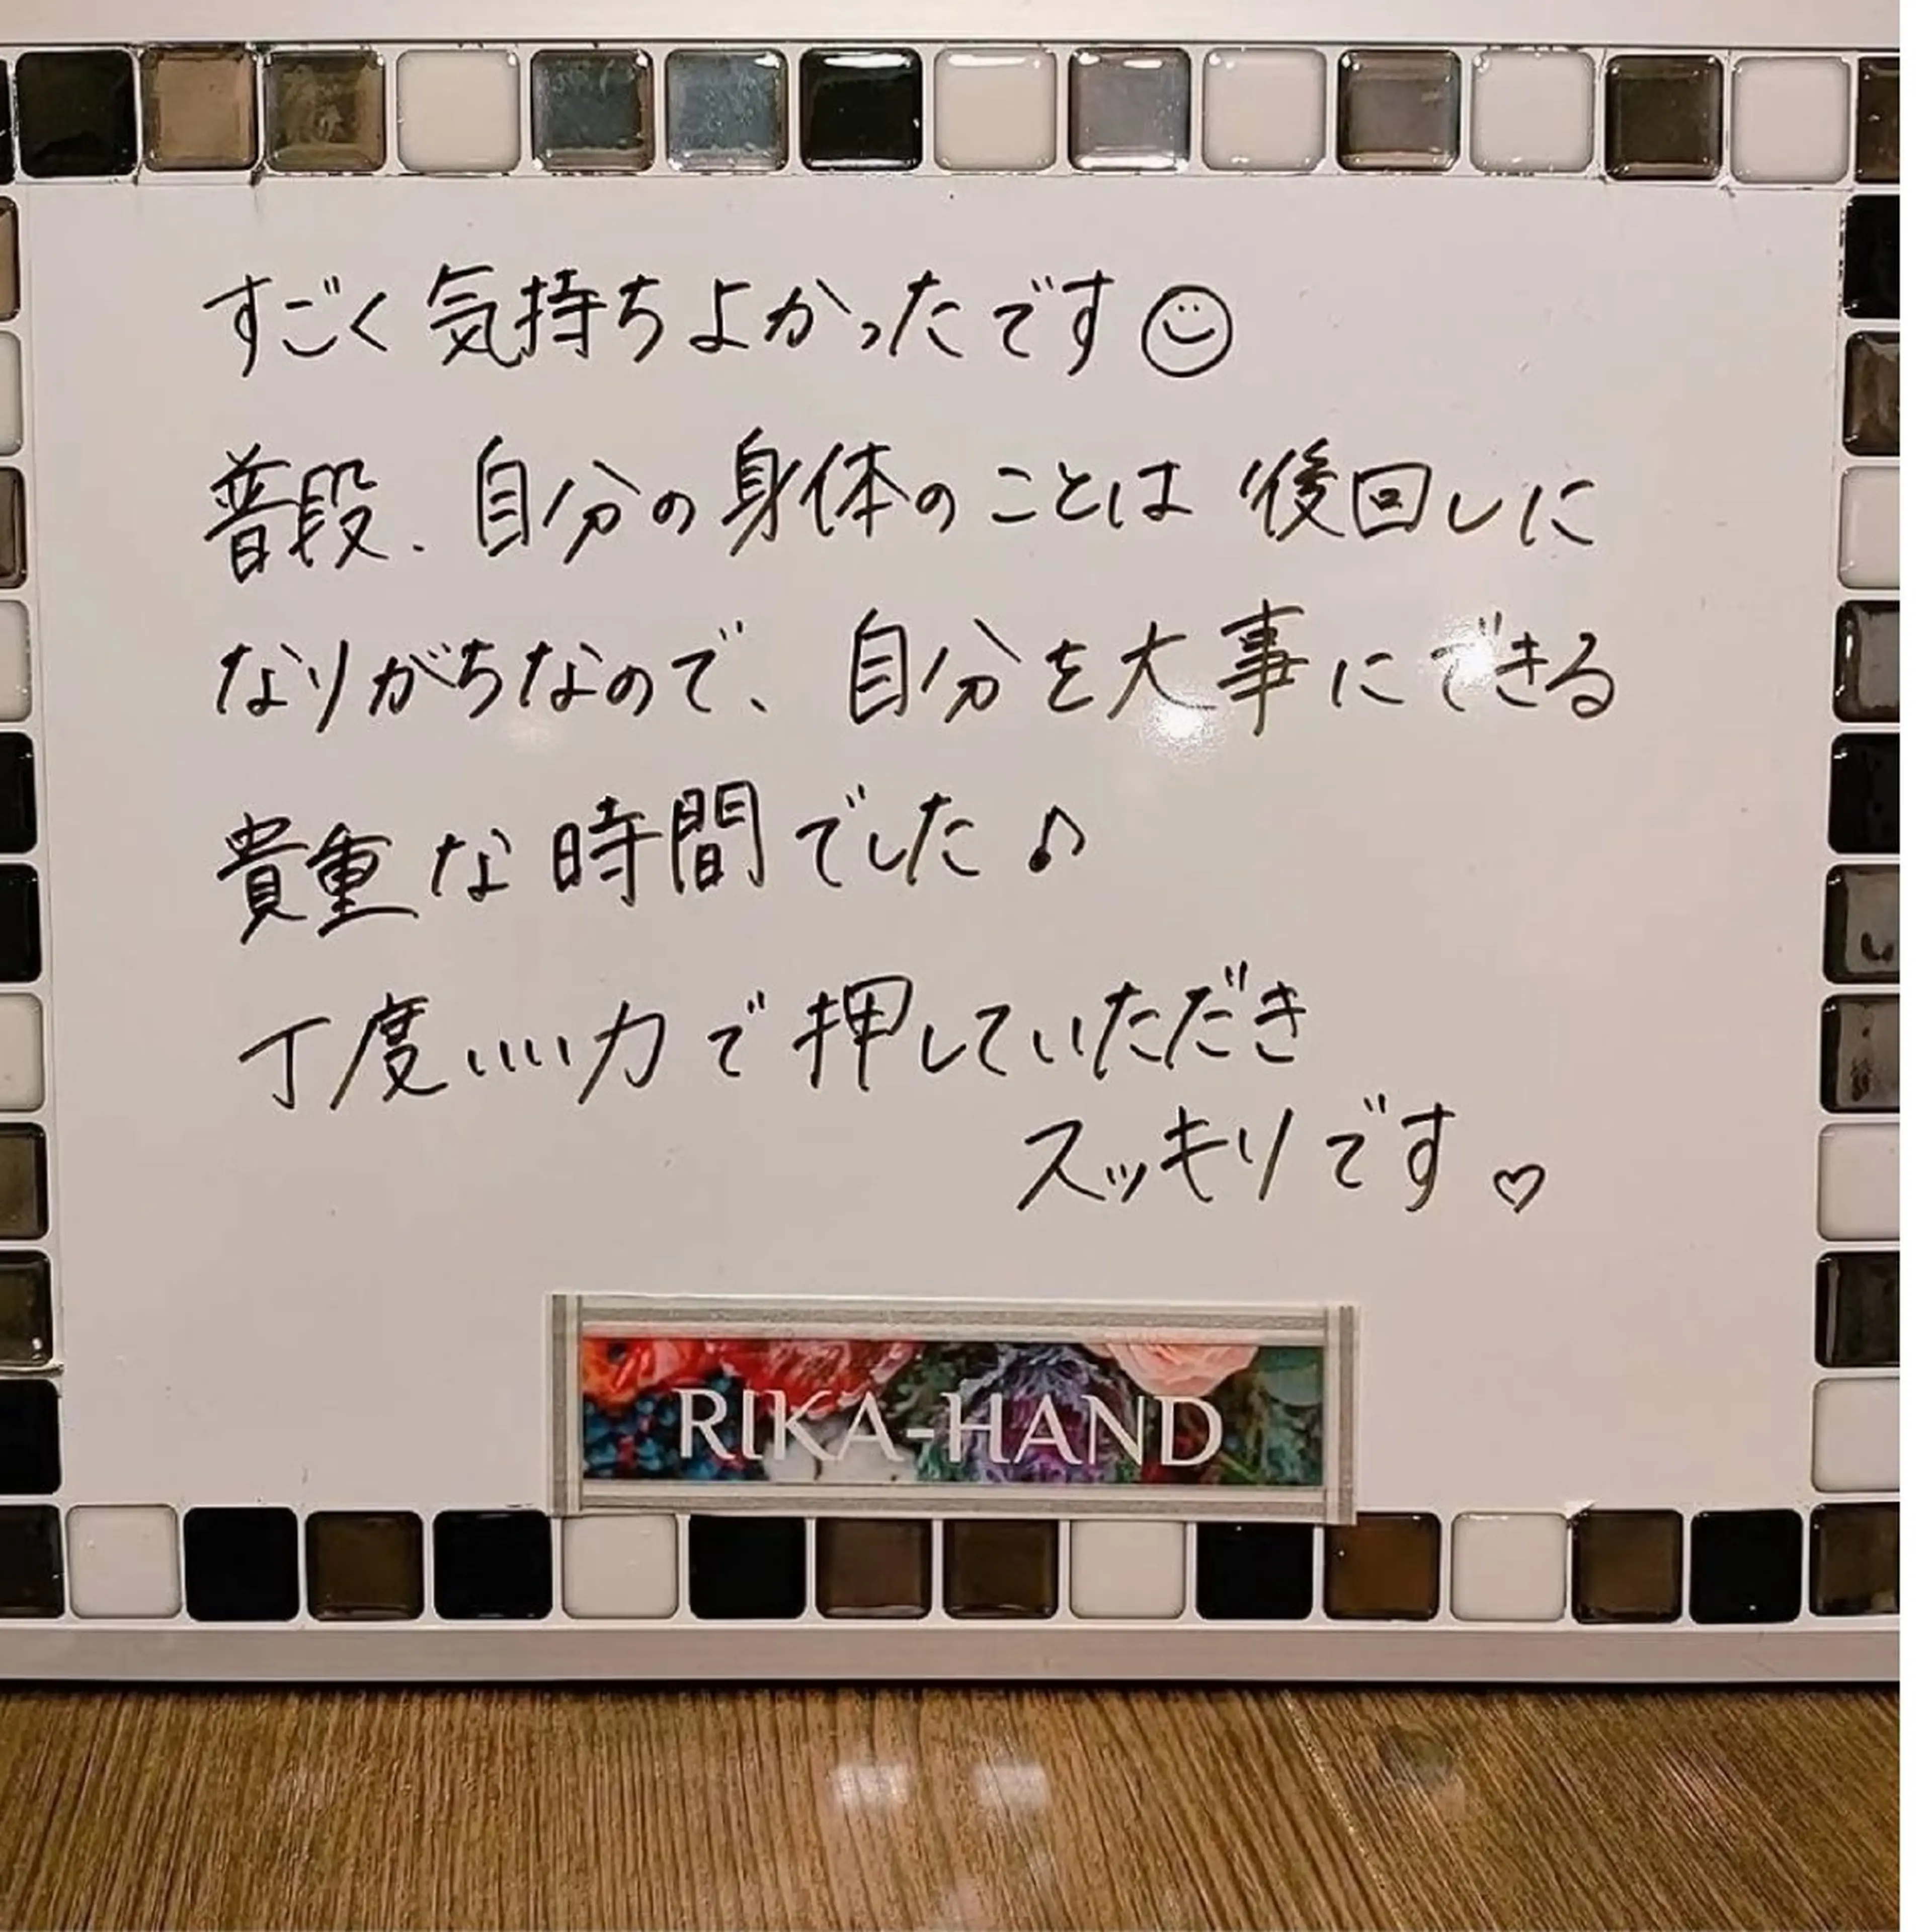 すごく気持ちよかったです☺
普段、自分の身体のことは後回しに
なりがちなので、自分を大事にできる
貴重な時間でした♪
丁度いい力で押していただき
スッキリです♡
RIKA-HAND